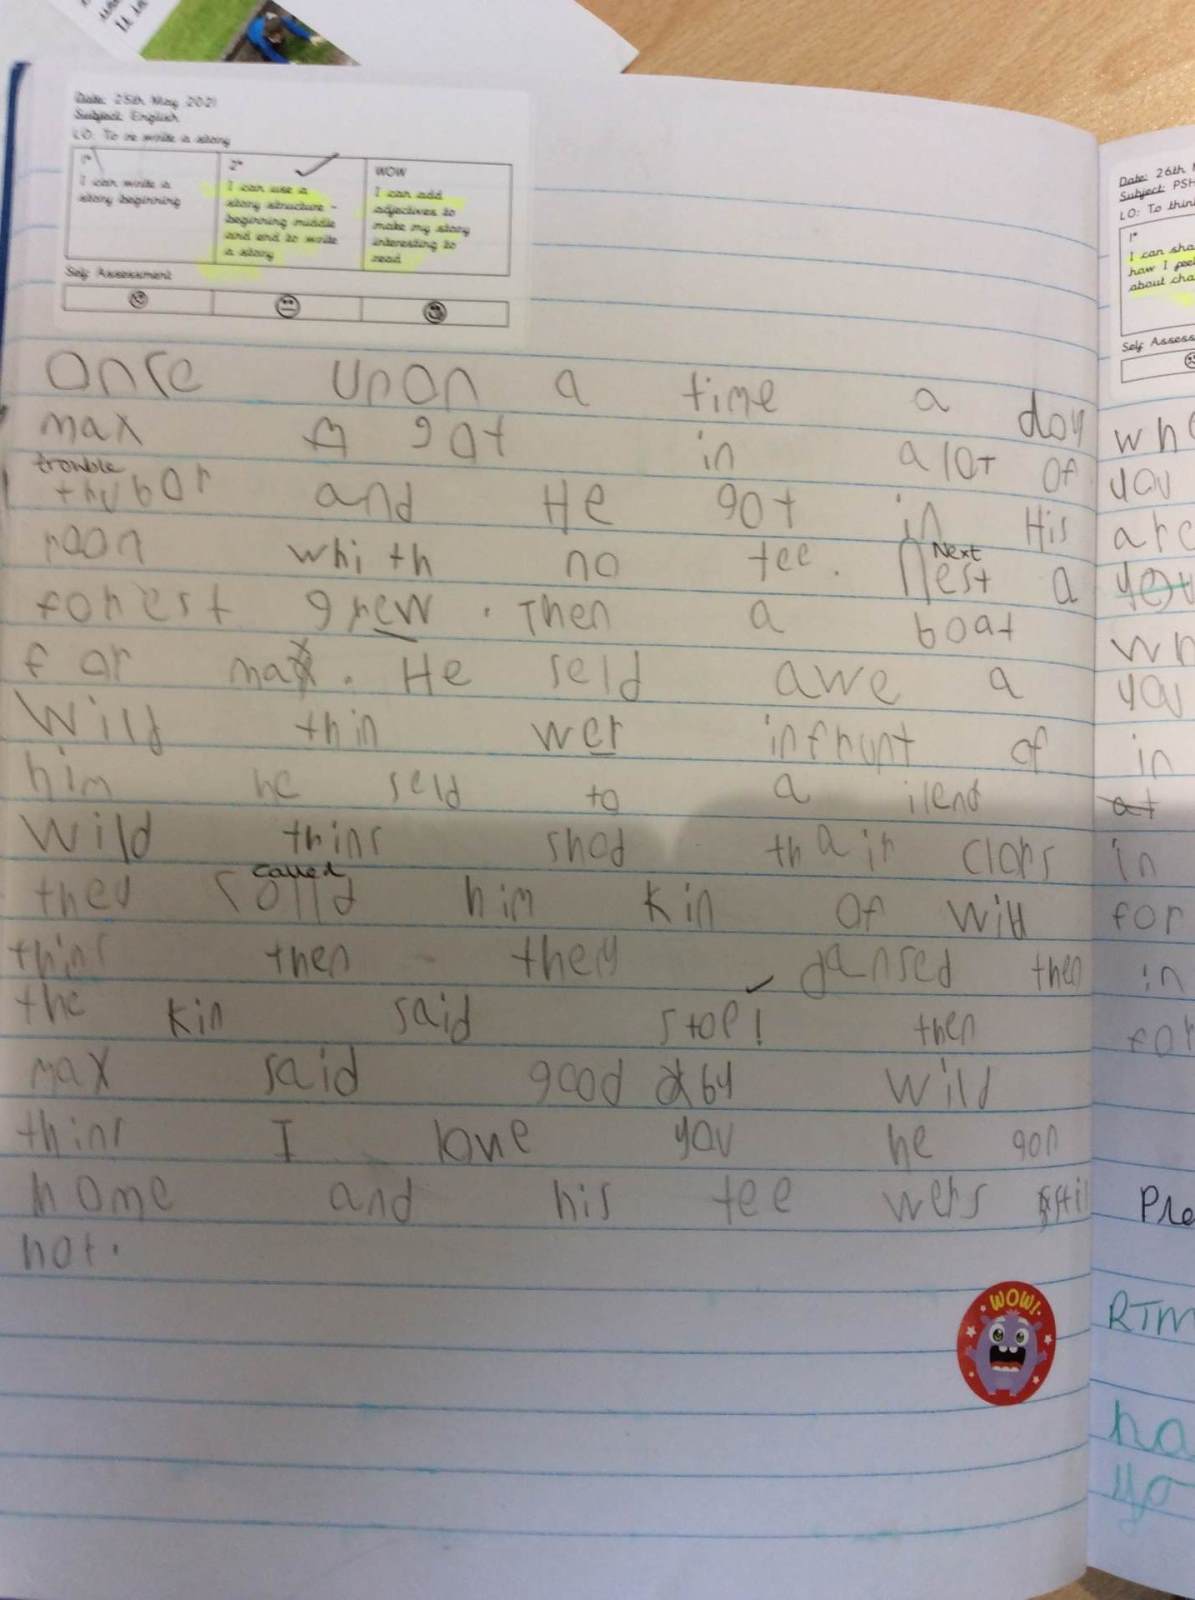 Date: 25th May 2021
Subject: English
LO: To re write a story
1* 2* WOW
I can write a story beginning
I can use a story structure - beginning middle and end to write a story
I can add adjectives to make my story interesting to read
Self Assessment
Once upon a time a doy
max got in a lot of
trouble
thubor and He got in His
roon whith no tee. Nest a
Next
forest grew. Then a boat
for max. He seld awe a
Wild thin wer infrunt of
him he seld to a ilend
Wild thins shod thair clors
called
they colld him kin of Wild
thins then they dansed then
the kin said stop! then
max said good by Wild
thins I love you he gon
home and his tee wers stil
hot.
WOW!
Date: 26th
Subject: PSH
LO: To thin
1*
I can sha
how I feel
about cha
Self Assess
who
you
are
you
wh
you
in
at
in
for
in
for
Ple
RTM
ha
yo